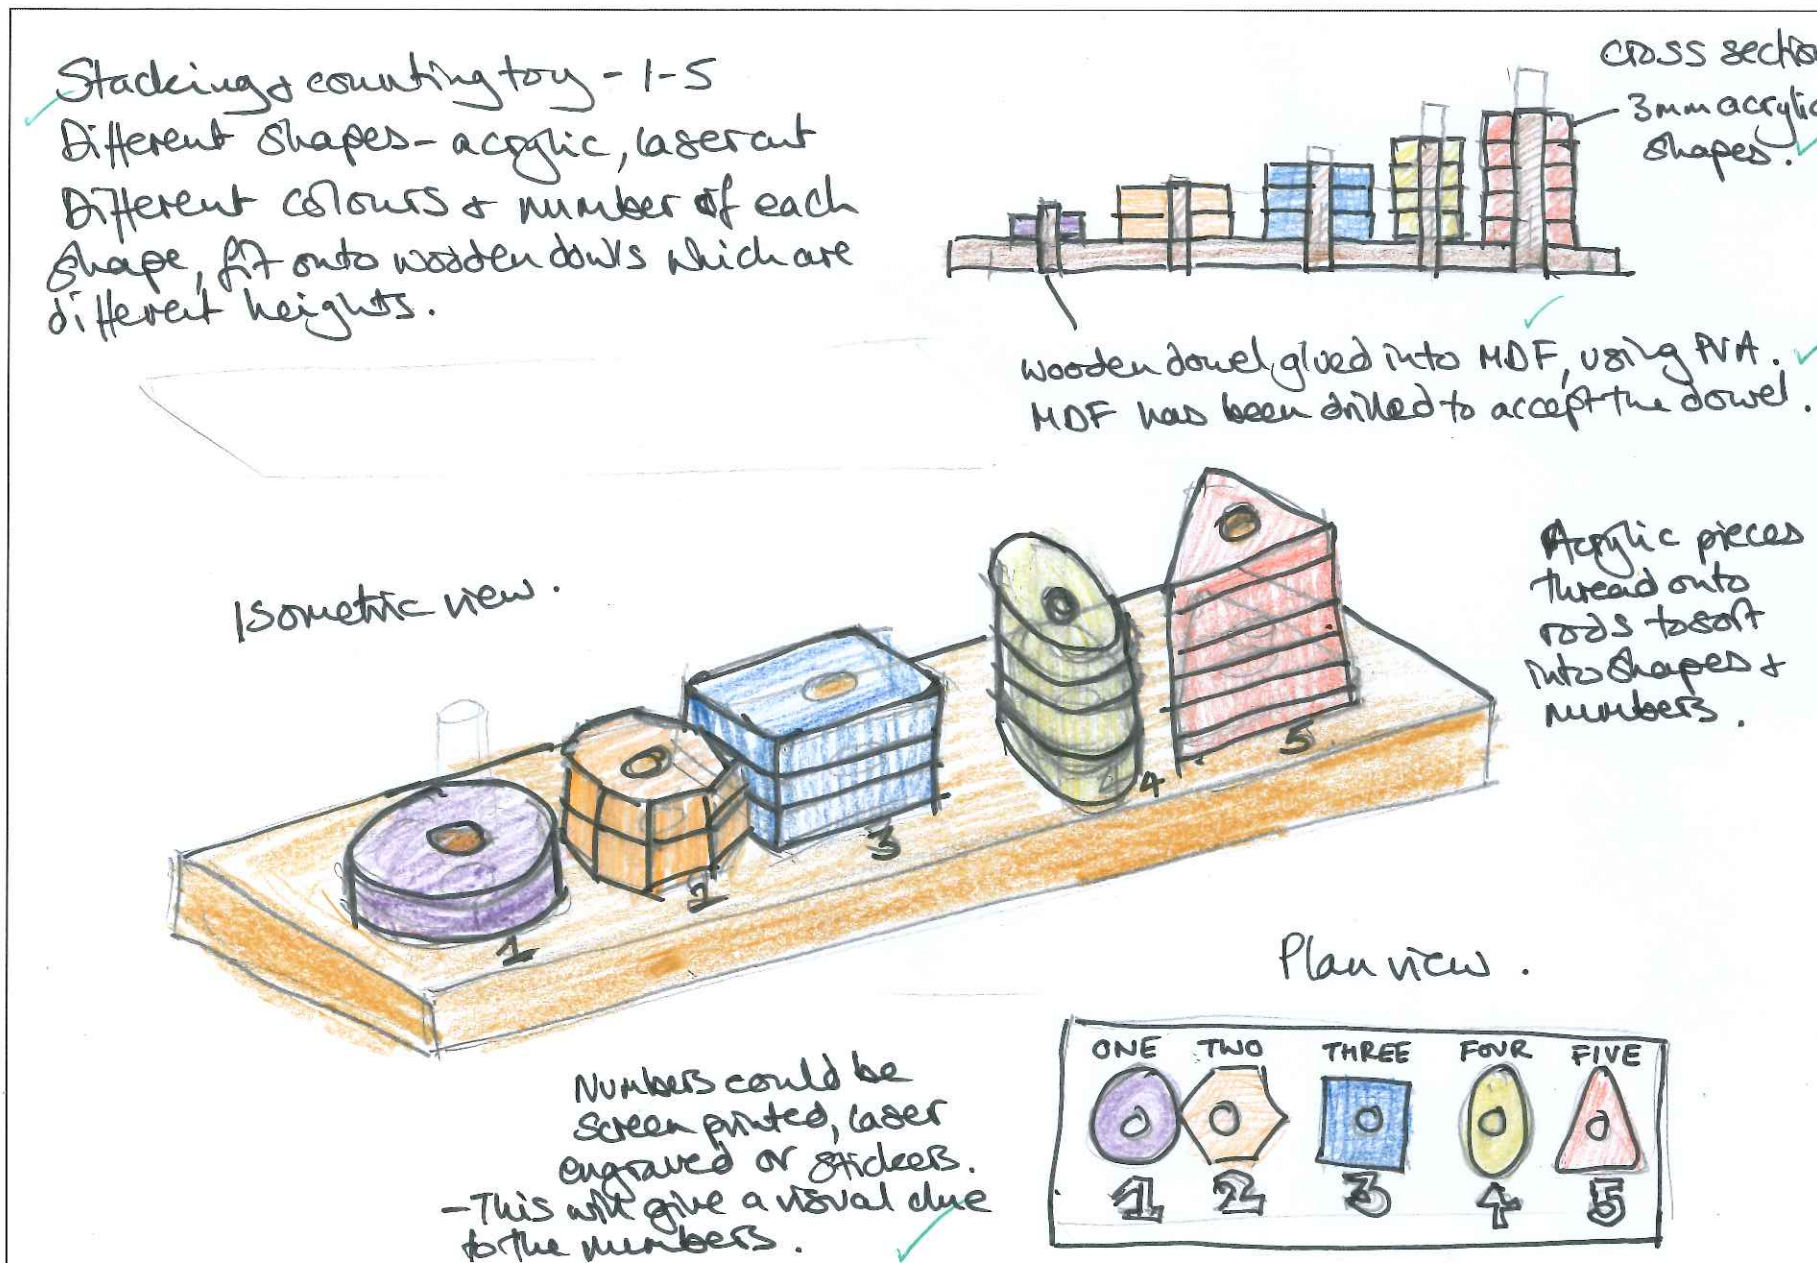 Stacking & counting toy - 1-5
Different shapes - acrylic, laser cut
Different colours & number of each
shape, fit onto wooden dowls which are
different heights.
cross section
3mm acrylic
shapes.
wooden dowel glued into MDF, using PVA.
MDF has been drilled to accept the dowel.
Isometric view.
Acrylic pieces
thread onto
rods to sort
into shapes &
numbers.
1
2
3
4
5
Numbers could be
screen printed, laser
engraved or stickers.
- This will give a visual clue
to the numbers.
Plan view.
ONE TWO THREE FOUR FIVE
1 2 3 4 5